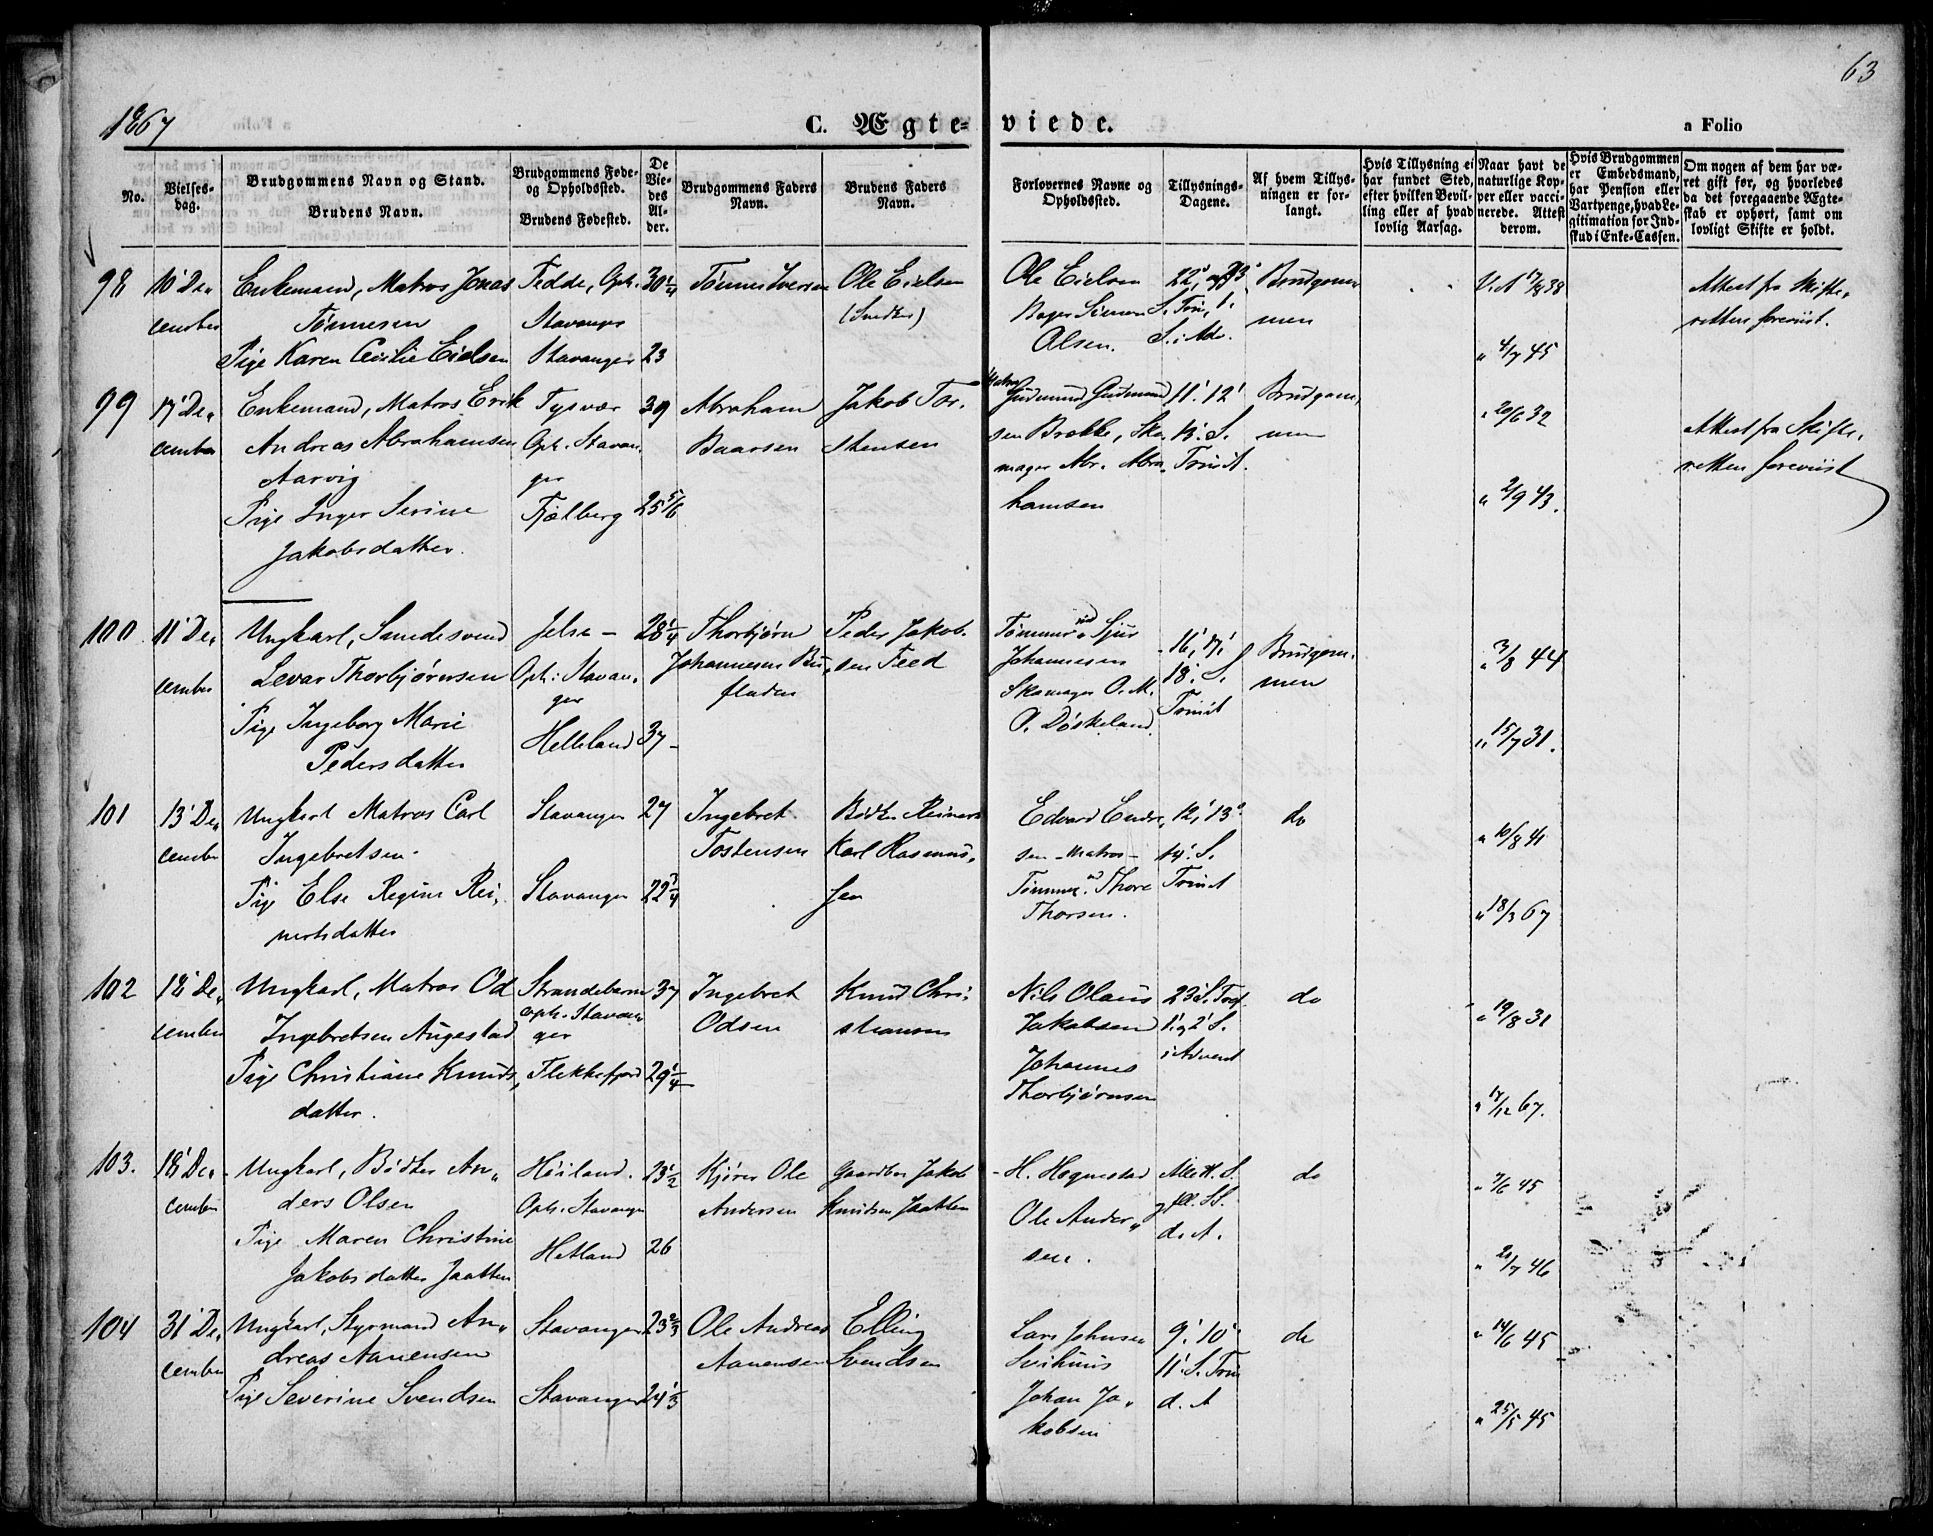 63
1867
C. Ægte-viede.
a Folio
No.
Vielses-dag.
Brudgommens Navn og Stand.
Brudens Navn.
Brudgommens Føde- og Opholdssted.
Brudens Fødested.
De Viedes Alder.
Brudgommens Faders Navn.
Brudens Faders Navn.
Forlovernes Navne og Opholdssted.
Tillysnings-Dagene.
Af hvem Tillysningen er forlangt.
Hvis Tillysning ei har fundet Sted, efter hvilken Bevilling eller af hvad lovlig Aarsag.
Naar havt de naturlige Kopper eller vaccinerede. Attest derom.
Hvis Brudgommen er Embedsmand, har Pension eller Vartpenge, hvad Legitimation for Indskud i Enke-Cassen.
Om nogen af dem har været gift før, og hvorledes da det foregaaende Ægteskab er ophørt, samt om lovligt Skifte er holdt.
98
10' De-
cember
Enkemand, Matros Jonas
Tønnesen
Pige Karen Cecilie Eielsen
Fedde, Oph.
Stavanger
Stavanger
30 1/4
23
Tønnes Iversen
Ole Eielsen
(Snedker)
Ole Eielsen
Bager Simon
Olsen.
22', og 23'
S. Trin, 1.
S. i Adv.
Brudgom-
men
V.A 17/8 38
" 4/7 45
Attest fra Skifte-
retten foreviist.
99
17' De-
cember
Enkemand, Matros Erik
Andreas Abrahamsen
Aarvig
Pige Inger Serine
Jakobsdatter.
Tysvær
Oph. Stavan-
ger
Fjelberg
39
25 5/6
Abraham
Baarsen
Jakob Tor-
stensen
Matros
Gudmund Gudmund-
sen Brekke, Sko-
mager Abr. Abra-
hamsen
11', 12'
13'. S.
Trinit.
Brudgom-
men
" 20/6 32
" 2/9 43.
Attest fra Skifte-
retten foreviist
100
11' De-
cember
Ungkarl, Smedesvend
Levar Thorbjørnsen
Pige Ingeborg Marie
Pedersdatter
Jelse -
Oph: Stavan-
ger
Helleland
28 1/4
37 -
Thorbjørn
Johannesen
fladen
Peder Jakob-
sen Feed
Tømmermd Sjur
Johannesen
Skomager O. M.
O. Døskeland.
16', 17',
18'. S.
Trinit
Brudgom-
men
" 3/8 44
" 15/7 31.
101
13' De-
cember
Ungkarl Matros Carl
Ingebretsen.
Pige Else Regine Rei-
nertsdatter
Stavanger
Stavanger
27
22 3/4
Ingebret
Tostensen
Bødker Reinert
Karl Rasmus-
sen
Edvard Endre-
sen - Matros -
Tømmermd Thore
Thorsen.
12', 13'
14'. S.
Trinit
do
" 10/8 41
" 18/3 67
102
18' De-
cember
Ungkarl, Matros Od
Ingebretsen Augestad
Pige Christiane Knuds-
datter.
Strandebarm
Oph. Stavan-
ger
Flekkefjord
37
29 1/4
Ingebret
Odsen
Knud Chri-
stiansen
Nils Olaus
Jakobsen
Johannes
Thorbjørnsen
23' S. Tref.
1' og 2' S.
i Advent
do
" 19/8 31
" 17/12 67.
103.
18' De-
cember
Ungkarl, Bødker An-
ders Olsen
Pige Maren Christine
Jakobsdatter Jaatten
Høiland.
Oph. Stavanger
Hetland
23 1/2
26
Kjører Ole
Andersen
Gaardbr Jakob
Knudsen Jaatten
H. Hognestad
Ole Ander-
sen.
d. A.
do
" 7/6 45
" 20/7 46
104
31' De-
cember
Ungkarl, Styrmand An-
dreas Aanensen
Pige Severine Svendsen
Stavanger
Stavanger
23 2/3
24 1/3
Ole Andreas
Aanensen
Elling
Svendsen
Lars Johnsen
Johan Ja-
kobsen
9', 10'
11'. S. Trin
d. A
do
" 14/6 45
" 25/5 45